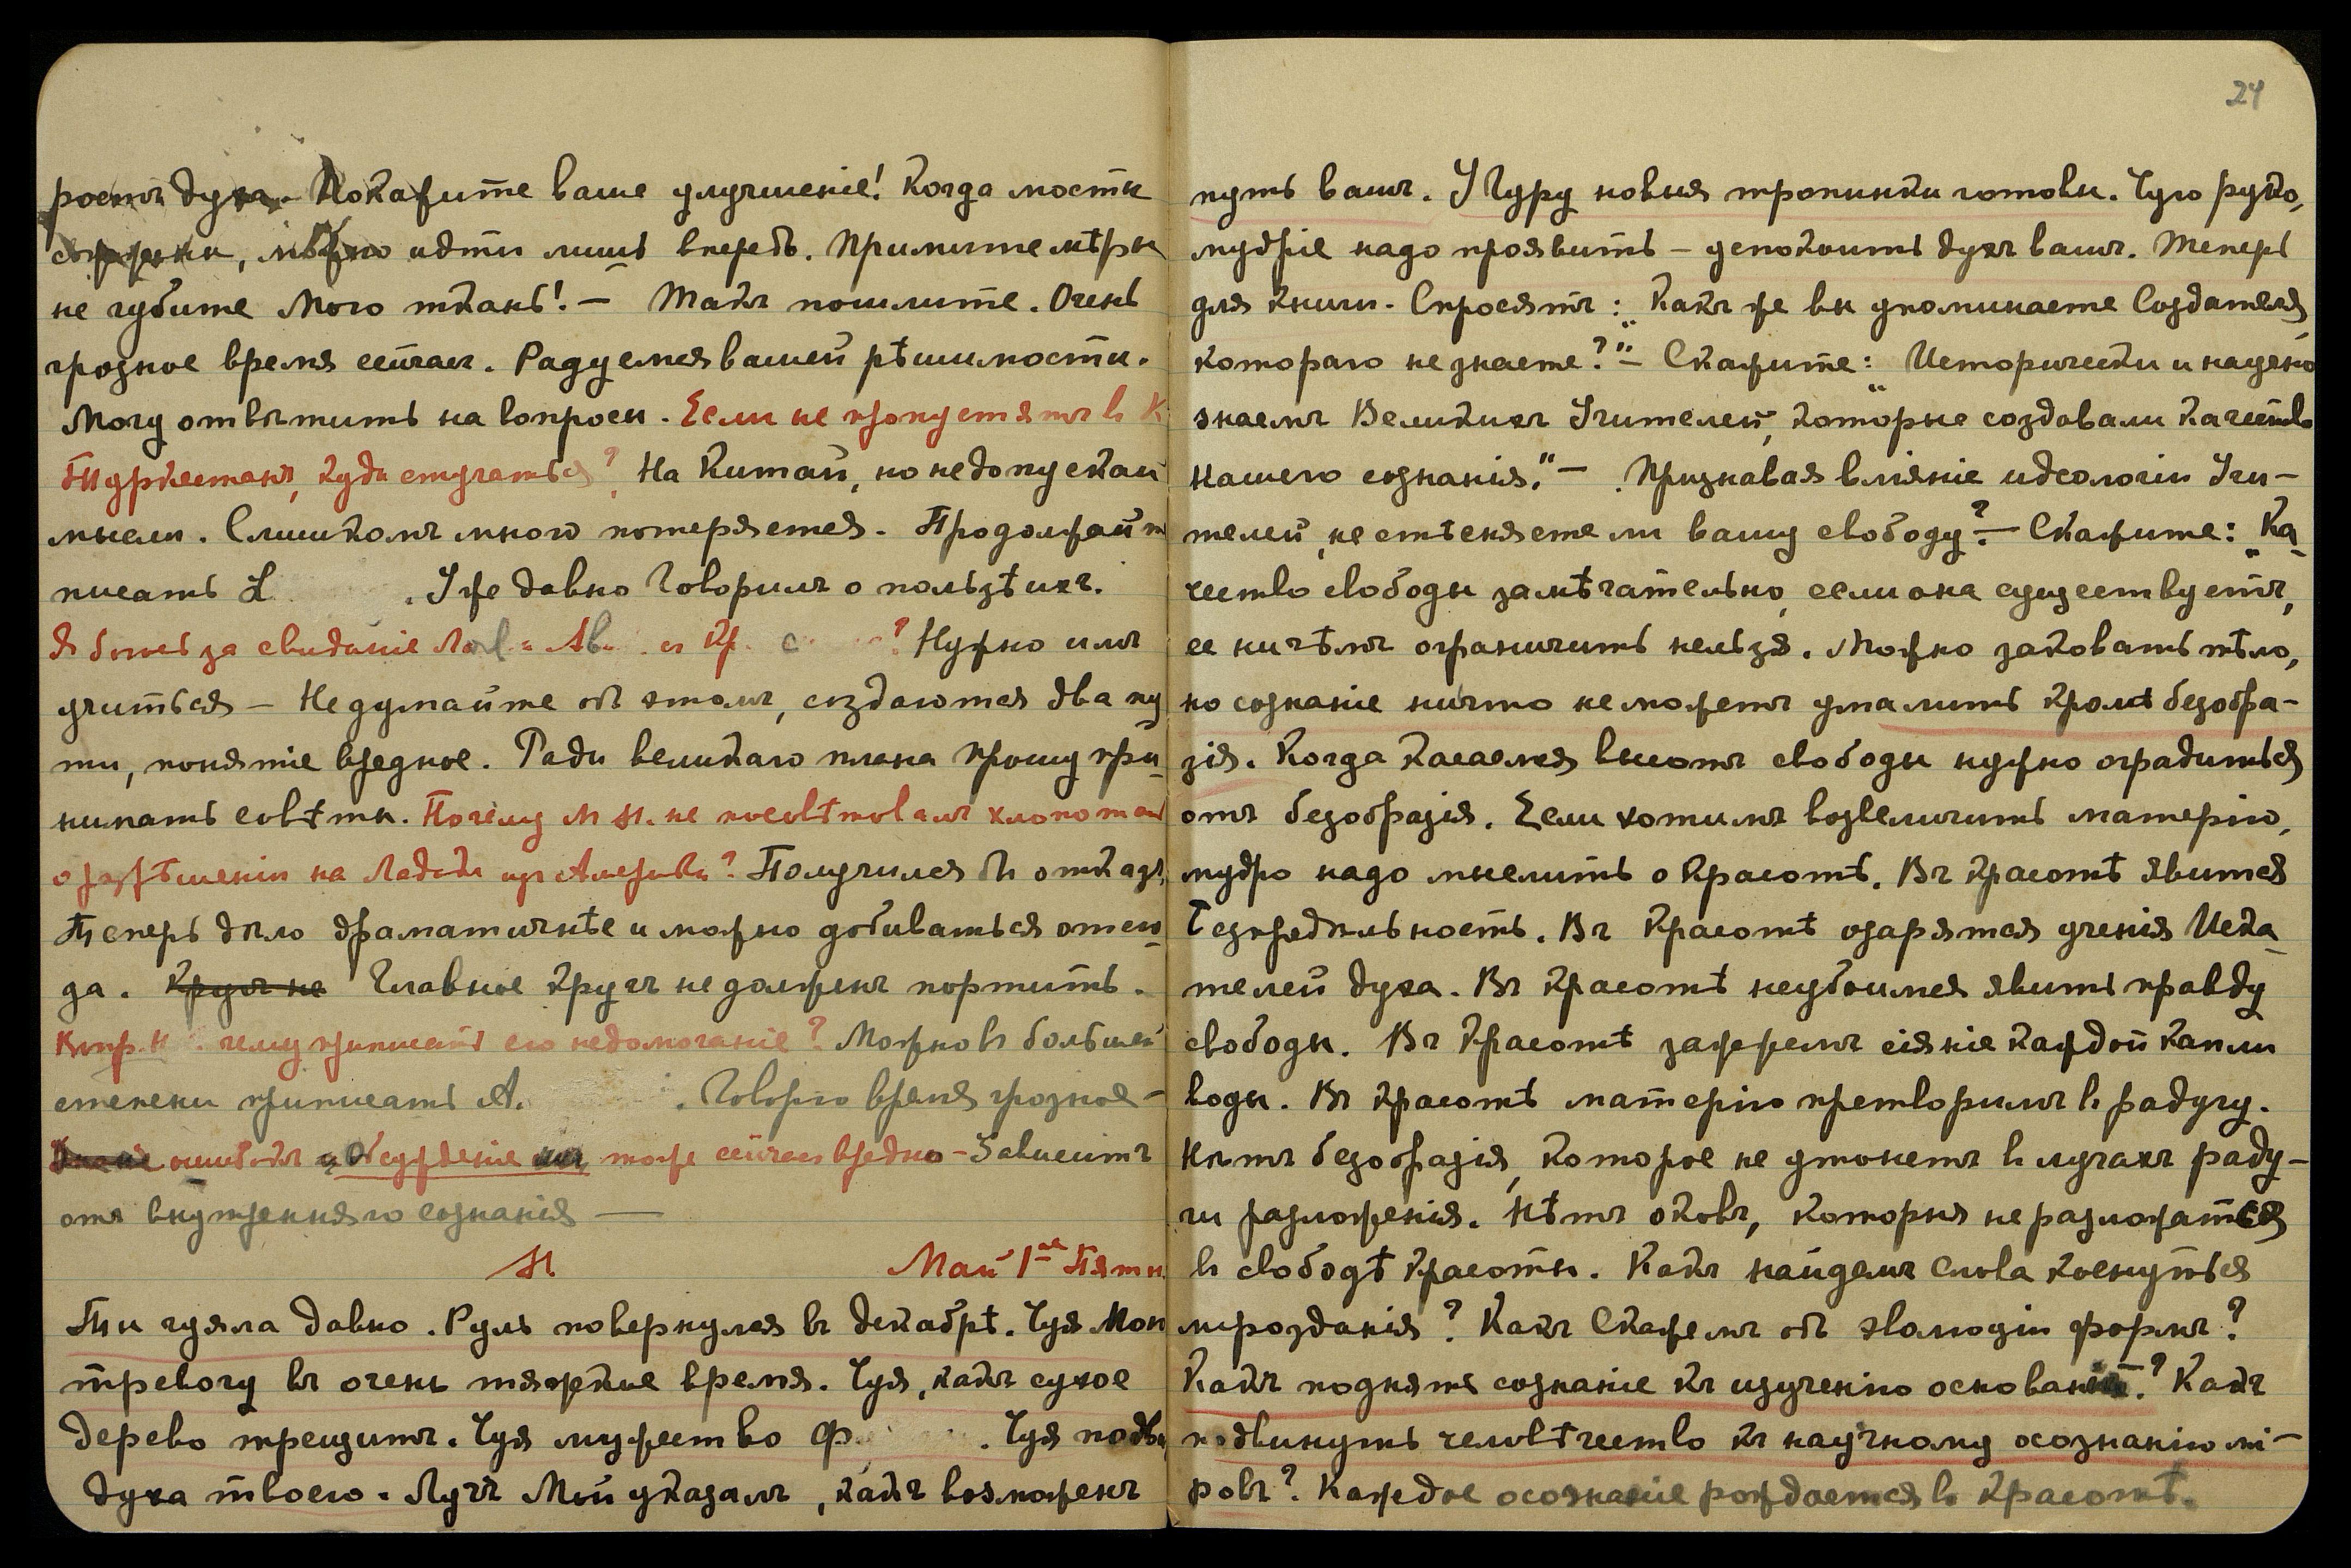 ростъ духа. Покажите ваше улучшеніе! Когда мосты
сожжены, можно идти лишь впередъ. Примите мѣры
не губите Мою ткань! — Такъ пошлите. Очень
грозное время сейчас. Радуемся вашей рѣшимости.
Могу отвѣтить на вопросы. Если не пропустятъ в К
Туркестанъ, куда стучаться? На Китай, но не допускаю
мысли. Слишкомъ много потеряется. Продолжайт
писать L . Уже давно Говорилъ о пользѣ ихъ.
Я боюсь за свиданіе и Кр. ? Нужно имъ
учиться — Не думайте объ этомъ, создаются два пу
ти, понятіе вредное. Ради великаго плана прошу при-
нимать совѣты. Почему М. М. не посовѣтовалъ хлопотать
о разрѣшеніи на Ладакъ изъ Америки? Получился бы отказъ,
Теперь дѣло драматичнѣе и можно добиваться отсю-
да. Кругъ не Главное кругъ не долженъ портить.
Вопр. Н чему приписать его недомоганіе? Можно въ большей
степени приписать А. . Говорю время грозное —
ошибокъ и Обсужденіе их тоже сейчасъ вредно - Зависитъ
отъ внутренняго сознанія —
М Май 1ое Пятн
Ты чуяла давно. Руль повернулся въ декабрѣ. Чуя Мою
тревогу въ очень тяжкие время. Чуя, какъ сухое
дерево трещитъ. Чуя мужество Ф. . Чуя подви
духа твоего. Лучъ Мой указалъ, какъ возможенъ
24
путь вашъ. У Гуру новыя тропинки готовы. Чую руко,
мудріе надо проявить — успокоить духъ вашъ. Теперь
для книги. Спросятъ: „Какъ же вы упоминаете Создателя,
котораго не знаете?" — Скажите: „Исторически и научно
знаемъ Великихъ Учителей, которые создавали качество
нашего сознанія." — Признавая вліяніе идеологіи Учи-
телей, не стѣсняете ли вашу свободу? — Скажите: „Ка-
чество свободы замѣчательно, если она существуетъ,
ее ничѣмъ ограничить нельзя. Можно заковать тѣло,
но сознаніе ничто не можетъ умалить кромѣ безобра-
зія. Когда касаемся высотъ свободы нужно оградиться
отъ безобразія. Если хотимъ возвеличить матерію,
мудро надо мыслить о Красотѣ. Въ красотѣ явится
Безпредѣльность. Въ Красотѣ озарятся ученія Иска-
телей духа. Въ Красотѣ неубоимся явить правду
свободы. Въ Красотѣ зажжемъ сіяніе каждой капли
воды. Въ Красотѣ матерію претворимъ въ радугу.
Нѣтъ безобразія, которое не утонетъ въ лучахъ раду-
ги разложенія. Нѣтъ оковъ, которыя не разложатся
въ свободѣ Красоты. Какъ найдемъ слова коснуться
мірозданія? Какъ Скажемъ объ эволюціи формъ?
Какъ поднять сознаніе къ изученію основаній? Какъ
подвинуть человѣчество къ научному осознанію мі-
ровъ? Каждое осознаніе рождается въ Красотѣ.